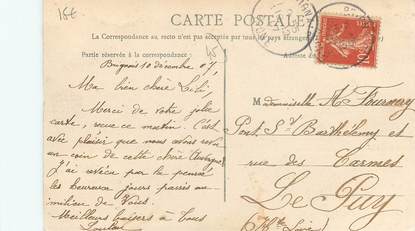 15€
CARTE POSTALE
La Correspondance au recto n'est pas acceptée par tous les pays étrangers
Partie réservée à la correspondance
Adresse
45
10 décembre 07
Ma bien chère Lili,
Merci de votre jolie
carte, reçue ce matin. C'est
avec plaisir que nous avons revu
un coin de cette chère Auvergne
J'ai revécu par la pensée
les heureux jours passés au
milieu de Vous.
Meilleurs baisers à tous
Mademoiselle A. Tournery
Pont St Barthélemy et
rue des Carmes
Le Puy
(Hte Loire)
10